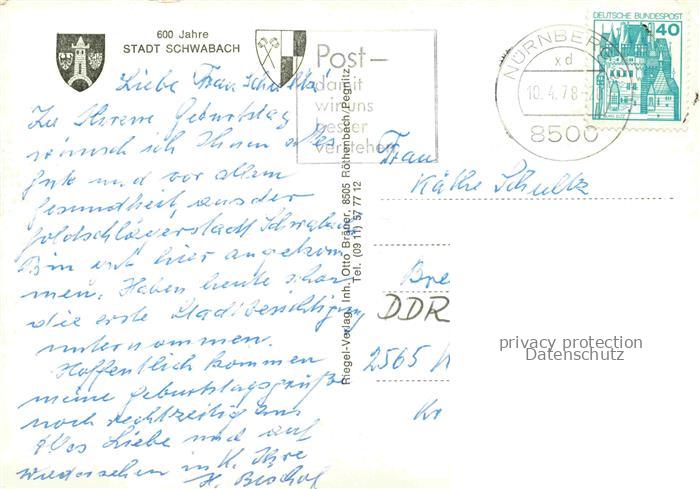 600 Jahre
STADT SCHWABACH
Post—
damit
wir uns
besser
verstehen
NÜRNBERG
xd
10.4.78
8500
DEUTSCHE BUNDESPOST
40
Liebe Frau Schultz!
Zu Ihrem Geburtstag
wünsch ich Ihnen alles
Gute und vor allem
Gesundheit, aus der
Goldschlägerstadt Schwabach
Bin gut hier angekom
men. Haben heute schon
die erste Stadtbesichtigung
unternommen.
Hoffentlich kommen
meine Geburtstagsgrüße
noch rechtzeitig an
Alles Liebe und auf
Wiedersehen in K. Ihre
H. Bischof
Riegel-Verlag, Inh. Otto Bräner, 8505 Röthenbach/Pegnitz
Tel. (09 11) 57 77 12
Frau
Käthe Schultz
Bre
DDR
2565
Kr
privacy protection
Datenschutz